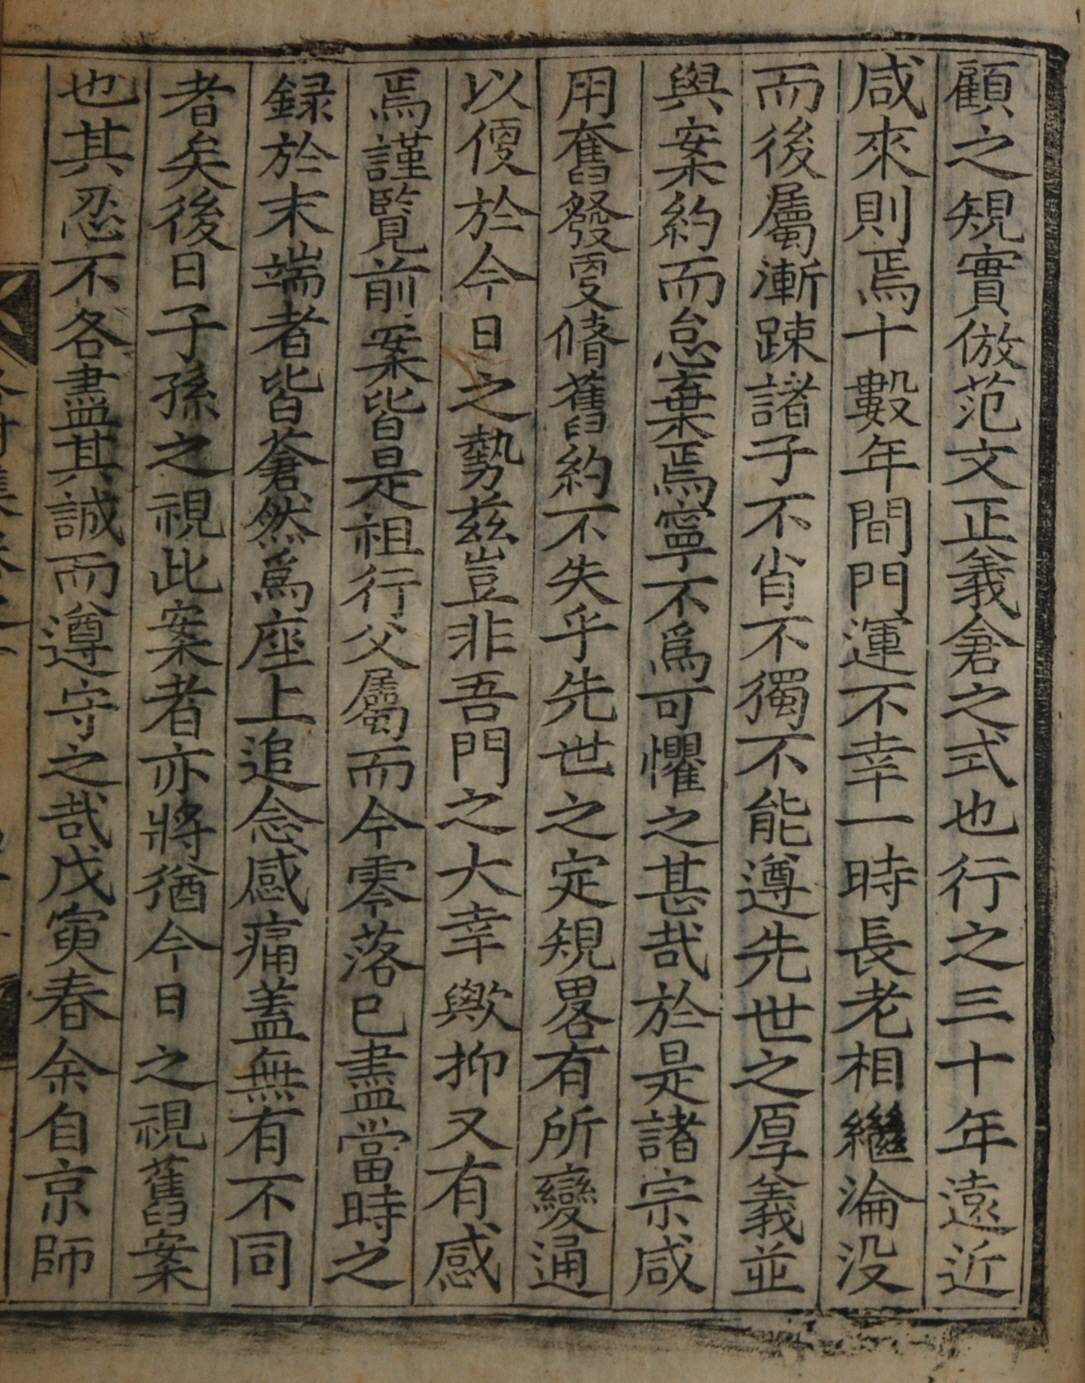 顧之規實倣范文正義倉之式也行之三十年遠近
咸來則焉十數年間門運不幸一時長老相繼淪没
而後屬漸踈諸子不肖不獨不能遵先世之厚義並
與案約而怠棄焉寧不爲可懼之甚哉於是諸宗咸
用奮發更脩舊約不失乎先世之定規畧有所變通
以便於今日之勢玆豈非吾門之大幸歟抑又有感
焉謹覽前案皆是祖行父屬而今零落已盡當時之
録於末端者皆蒼然爲座上追念感痛蓋無有不同
者矣後日子孫之視此案者亦將猶今日之視舊案
也其忍不各盡其誠而遵守之哉戊寅春余自京師